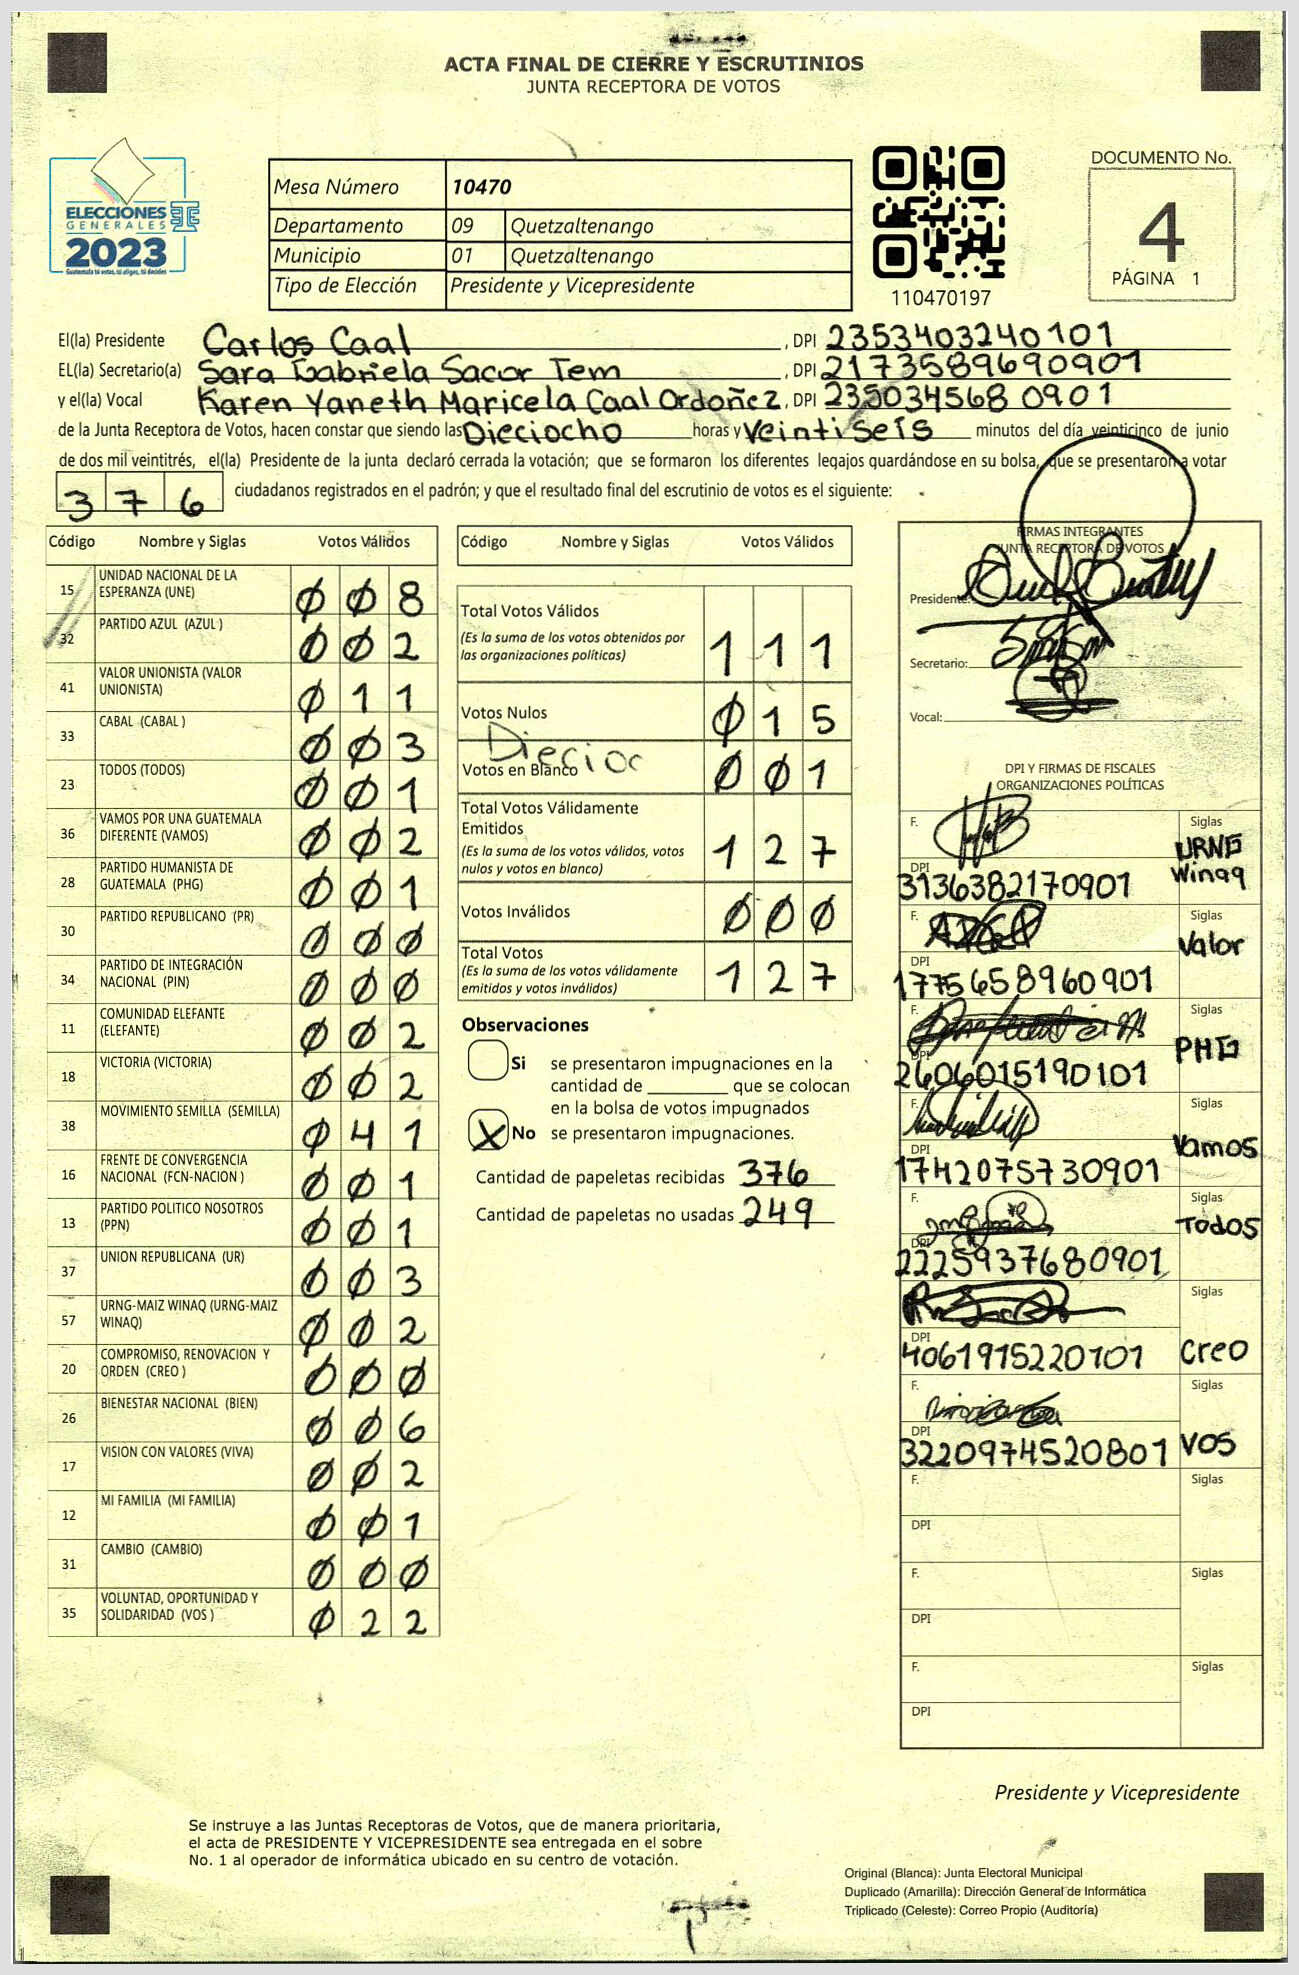 ACTA FINAL DE CIERRE Y ESCRUTINIOS
JUNTA RECEPTORA DE VOTOS
ELECCIONES
GENERALES
2023
Guatemala tú votas, tú eliges, tú decides
Mesa Número 10470
Departamento 09 Quetzaltenango
Municipio 01 Quetzaltenango
Tipo de Elección Presidente y Vicepresidente
110470197
DOCUMENTO No.
4
PÁGINA 1
El(la) Presidente Carlos Caal, DPI 2353403240101
EL(la) Secretario(a) Sara Gabriela Sacor Tem, DPI 2173589690901
y el(la) Vocal Karen Yaneth Maricela Caal Ordoñez, DPI 235034568 0901
de la Junta Receptora de Votos, hacen constar que siendo las Dieciocho horas y veintiseis minutos del día veinticinco de junio
de dos mil veintitrés, el(la) Presidente de la junta declaró cerrada la votación; que se formaron los diferentes legajos guardándose en su bolsa, que se presentaron a votar
376 ciudadanos registrados en el padrón; y que el resultado final del escrutinio de votos es el siguiente:
Código Nombre y Siglas Votos Válidos
15 UNIDAD NACIONAL DE LA ESPERANZA (UNE) 0 0 8
32 PARTIDO AZUL (AZUL ) 0 0 2
41 VALOR UNIONISTA (VALOR UNIONISTA) 0 1 1
33 CABAL (CABAL ) 0 0 3
23 TODOS (TODOS) 0 0 1
36 VAMOS POR UNA GUATEMALA DIFERENTE (VAMOS) 0 0 2
28 PARTIDO HUMANISTA DE GUATEMALA (PHG) 0 0 1
30 PARTIDO REPUBLICANO (PR) 0 0 0
34 PARTIDO DE INTEGRACIÓN NACIONAL (PIN) 0 0 0
11 COMUNIDAD ELEFANTE (ELEFANTE) 0 0 2
18 VICTORIA (VICTORIA) 0 0 2
38 MOVIMIENTO SEMILLA (SEMILLA) 0 4 1
16 FRENTE DE CONVERGENCIA NACIONAL (FCN-NACION ) 0 0 1
13 PARTIDO POLITICO NOSOTROS (PPN) 0 0 1
37 UNION REPUBLICANA (UR) 0 0 3
57 URNG-MAIZ WINAQ (URNG-MAIZ WINAQ) 0 0 2
20 COMPROMISO, RENOVACION Y ORDEN (CREO ) 0 0 0
26 BIENESTAR NACIONAL (BIEN) 0 0 6
17 VISION CON VALORES (VIVA) 0 0 2
12 MI FAMILIA (MI FAMILIA) 0 0 1
31 CAMBIO (CAMBIO) 0 0 0
35 VOLUNTAD, OPORTUNIDAD Y SOLIDARIDAD (VOS ) 0 2 2
Código Nombre y Siglas Votos Válidos
Total Votos Válidos
(Es la suma de los votos obtenidos por
las organizaciones políticas) 1 1 1
Votos Nulos 0 1 5
Diecioc
Votos en Blanco 0 0 1
Total Votos Válidamente
Emitidos
(Es la suma de los votos válidos, votos
nulos y votos en blanco) 1 2 7
Votos Inválidos 0 0 0
Total Votos
(Es la suma de los votos válidamente
emitidos y votos inválidos) 1 2 7
Observaciones
Si se presentaron impugnaciones en la
cantidad de ________ que se colocan
en la bolsa de votos impugnados
X No se presentaron impugnaciones.
Cantidad de papeletas recibidas 376
Cantidad de papeletas no usadas 249
FIRMAS INTEGRANTES
JUNTA RECEPTORA DE VOTOS
Presidente:
Secretario:
Vocal:
DPI Y FIRMAS DE FISCALES
ORGANIZACIONES POLÍTICAS
F. Siglas
URNG
Winaq
DPI
3136382170901
F. Siglas
Valor
DPI
1775658960901
F. Siglas
PHG
DPI
2606015190101
F. Siglas
Vamos
DPI
1742075730901
F. Siglas
Todos
DPI
2225937680901
F. Siglas
Creo
DPI
4061915220101
F. Siglas
VOS
DPI
3220974520801
F. Siglas
DPI
F. Siglas
DPI
F. Siglas
DPI
Presidente y Vicepresidente
Se instruye a las Juntas Receptoras de Votos, que de manera prioritaria,
el acta de PRESIDENTE Y VICEPRESIDENTE sea entregada en el sobre
No. 1 al operador de informática ubicado en su centro de votación.
Original (Blanca): Junta Electoral Municipal
Duplicado (Amarilla): Dirección General de Informática
Triplicado (Celeste): Correo Propio (Auditoría)